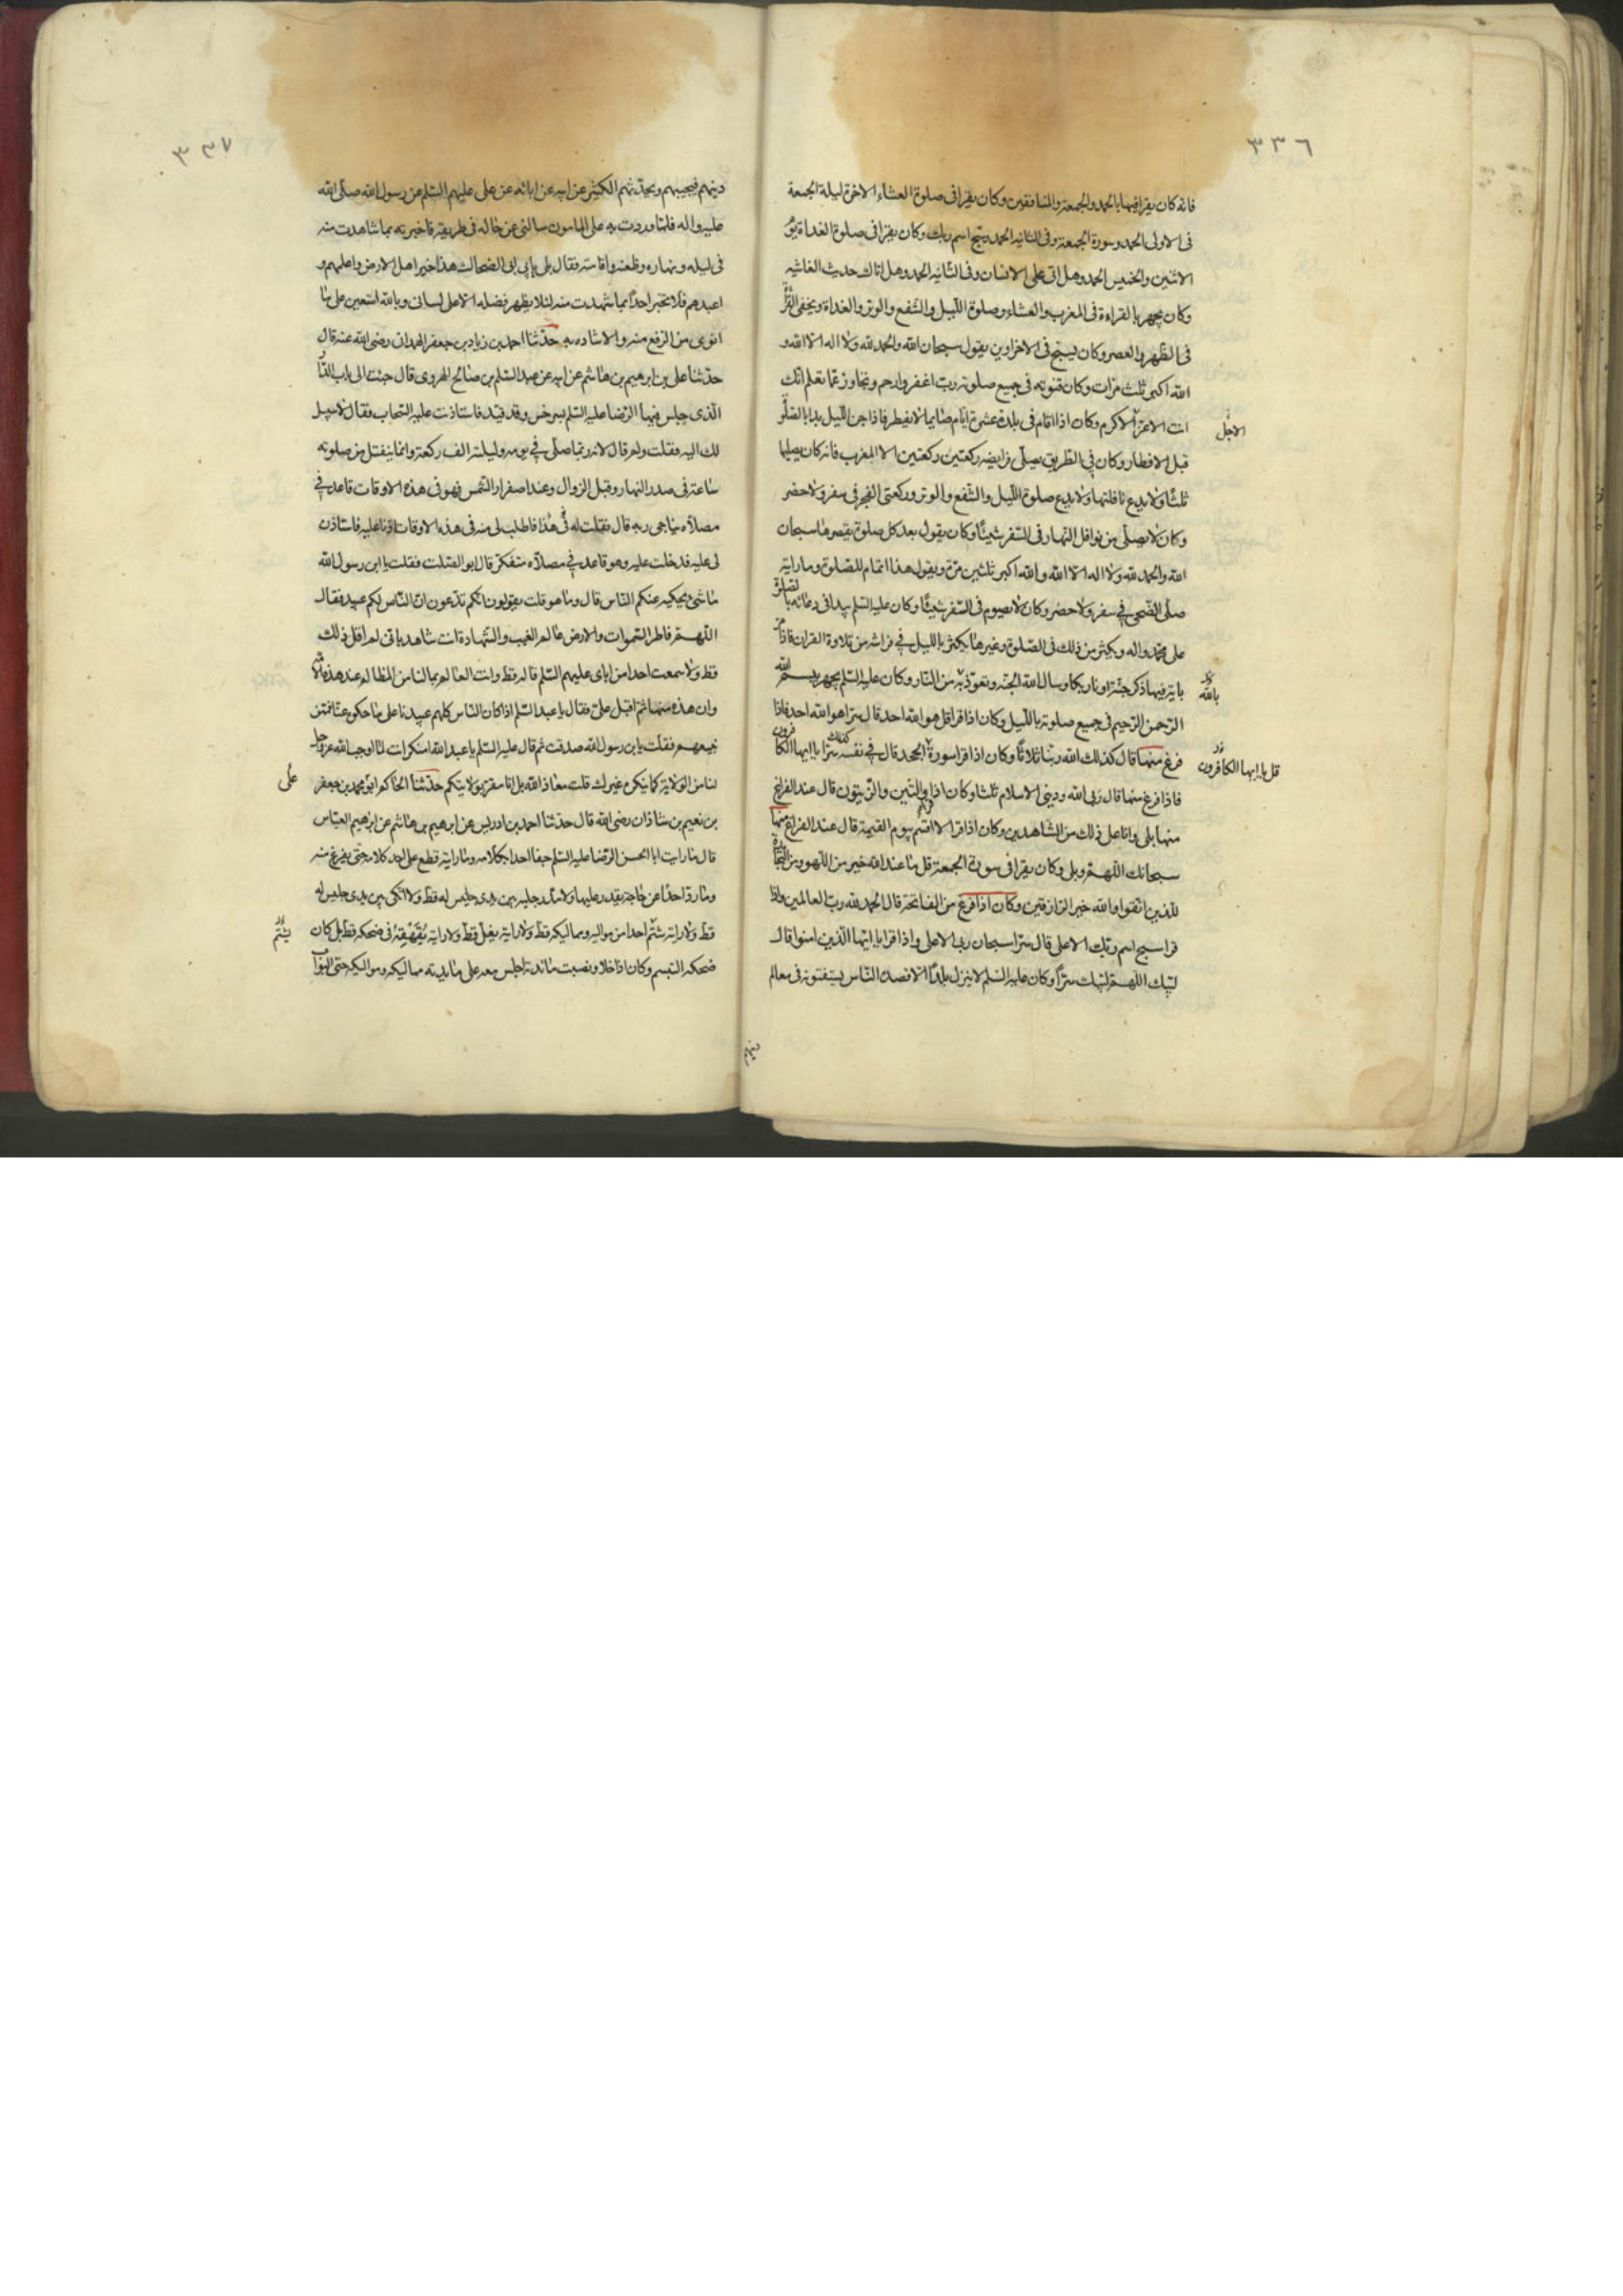 ٣٣٦
فانه كان يقرا فيها بالحمد والجمعة والمنافقين وكان يقرا في صلوة العشاء الاخرة ليلة الجمعة
في الاولى الحمد وسورة الجمعة وفي الثانيه الحمد وسبح اسم ربك وكان يقرا في صلوة الغداة يوم
الاثنين والخميس الحمد وهل اتى على الانسان وفي الثانيه الحمد وهل اتاك حديث الغاشيه
وكان يجهر بالقراءة في المغرب والعشاء وصلوة الليل والشفع والوتر والغداة ويخفى القراءة
في الظهر والعصر وكان يسبح في الاخراوين يقول سبحان الله والحمد لله ولا اله الا الله و
الله اكبر ثلث مرات وكان قنوته في جميع صلوته رب اغفر وارحم وتجاوز عما تعلم انك
انت الاعز الاكرم وكان اذا اقام في بلدة عشرة ايام صايما لا يفطر فاذا جن الليل بدا بالصلوة
الاجل
قبل الافطار وكان في الطريق يصلى فرايضه ركعتين ركعتين الا المغرب فانه كان يصليها
ثلثا ولا يدع نافلتها ولا يدع صلوة الليل والشفع والوتر وركعتى الفجر في سفر ولا حضر
وكان لا يصلى من نوافل النهار في السفر شيئا وكان يقول بعد كل صلوة يقصرها سبحان
الله والحمد لله ولا اله الا الله والله اكبر ثلثين مرة ويقول هذا اتمام للصلوة وما رايته
صلى الضحى في سفر ولا حضر وكان لا يصوم في السفر شيئا وكان عليه السلم يبدا في دعائه بالصلوة
على محمد واله ويكثر من ذلك في الصلوة وغيرها يكثر بالليل في فراشه من تلاوة القران فاذا مر
باية فيها ذكر جنة او نار بكا وسال الله الجنه وتعوذ به من النار وكان عليه السلم يجهر ببسم الله
بالله
الرحمن الرحيم في جميع صلوته بالليل وكان اذا قرا قل هو الله احد قال سرا هو الله احد فاذا
فرغ منها قال كذلك الله ربنا ثلاثا وكان اذا قرا سورة الجحد قال في نفسه سرا يا ايها الكافرون
قل يا ايها الكافرون
فاذا فرغ منها قال ربى الله ودينى الاسلام ثلثا وكان اذا قرا والتين والزيتون قال عند الفراغ
منها بلى وانا على ذلك من الشاهدين وكان اذا قرا لا اقسم بيوم القيمة قال عند الفراغ منها
سبحانك اللهم وبلى وكان يقرا في سورة الجمعة قل ما عند الله خير من اللهو ومن التجارة
للذين اتقوا والله خير الرازقين وكان اذا فرغ من الفاتحة قال الحمد لله رب العالمين واذا
قرا سبح اسم ربك الاعلى قال سرا سبحان ربى الاعلى واذا قرا يا ايها الذين امنوا قال
لبيك اللهم لبيك سرا وكان عليه السلم لا ينزل بلدا الا قصده الناس يستفتونه في معالم
دينهم
٣٣٧
دينهم فيجيبهم ويحدثهم الكثير عن ابيه عن ابائه عن على عليهم السلم عن رسول الله صلى الله
عليه واله فلما وردت به على المامون سالنى عن حاله في طريقه فاخبرته بما شاهدت منه
في ليله ونهاره وظعنه واقامته فقال بلى يا بن ابي الضحاك هذا خير اهل الارض واعلمهم و
اعبدهم فلا تخبر احدا بما شهدت منه لئلا يظهر فضله الا على لسانى وبالله استعين على ما
انوى من الرفع منه والاشاده به حدثنا احمد بن زياد بن جعفر الهمداني رضى الله عنه قال
حدثنا على بن ابرهيم بن هاشم عن ابيه عن عبد السلم بن صالح الهروى قال جئت الى باب الدار
الذى حبس فيها الرضا عليه السلم بسرخس وقد قيد فاستاذنت عليه السجان فقال لا سبيل
لك اليه فقلت ولم قال لانه ربما صلى في يومه وليلته الف ركعة وانما ينفتل من صلوته
ساعة في صدر النهار وقبل الزوال وعند اصفرار الشمس فهو في هذه الاوقات قاعد في
مصلاه يناجى ربه قال فقلت له فاطلب لى منه في هذه الاوقات اذنا عليه فاستاذن
لى عليه فدخلت عليه وهو قاعد في مصلاه متفكر قال ابو الصلت فقلت يا ابن رسول الله
ما شئ يحكيه عنكم الناس قال وما هو قلت يقولون انكم تدعون ان الناس لكم عبيد فقال
اللهم فاطر السموات والارض عالم الغيب والشهادة انت شاهد بانى لم اقل ذلك
قط ولا سمعت احدا من اباى عليهم السلم قاله قط وانت العالم بما لنا من المظالم عند هذه الامة
وان هذه منها ثم اقبل على فقال يا عبد السلم اذا كان الناس كلهم عبيدنا على ما حكوه عنا فممن
نبيعهم فقلت يا بن رسول الله صدقت ثم قال عليه السلم يا عبد الله امنكر انت لما اوجب الله عز وجل
لنا من الولاية كما ينكره غيرك قلت معاذ الله بل انا مقر بولايتكم حدثنا الحاكم ابو محمد بن جعفر
على
بن نعيم بن شاذان رضى الله قال حدثنا احمد بن ادريس عن ابرهيم بن هاشم عن ابرهيم العباس
قال ما رايت ابا الحسن الرضا عليه السلم جفا احدا بكلامه وما رايته قطع على احد كلامه حتى يفرغ منه
وما رد احدا عن حاجة يقدر عليها ولا مد رجليه بين يدى جليس له قط ولا اتكى بين يدى جليس له
قط ولا رايته شتم احدا من مواليه ومماليكه قط ولا رايته تفل قط ولا رايته يقهقه في ضحكه قط بل كان
يشتم
ضحكه التبسم وكان اذا خلا ونصبت مائدته اجلس معه على مايدته مماليكه ومواليه حتى البواب